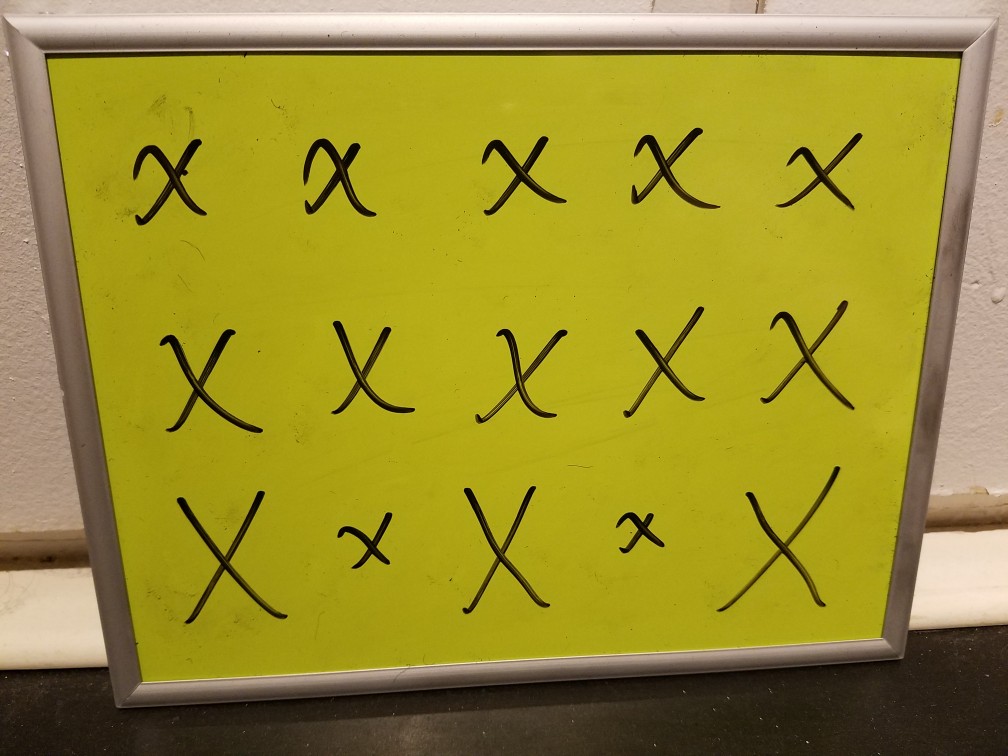 x x x x x
x x x x x
X x X x X